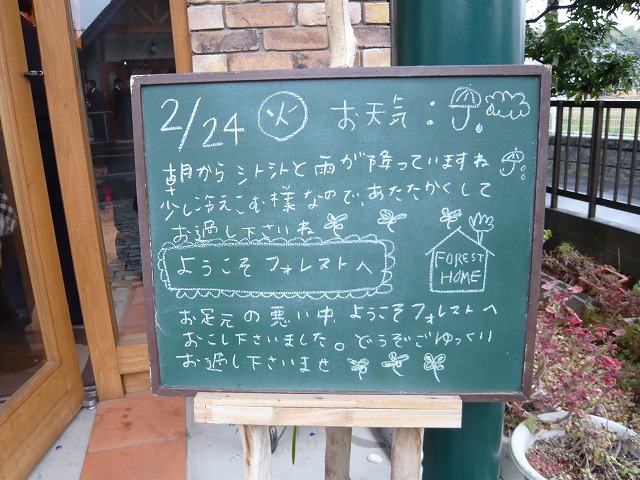 2/24 火 お天気:
朝からシトシトと雨が降っていますね
少し冷えこむ様なので、あたたかくして
お過し下さいね
ようこそ フォレストへ
FOREST
HOME
お足元の悪い中 ようこそフォレストへ
おこし下さいました。どうぞごゆっくり
お過し下さいませ